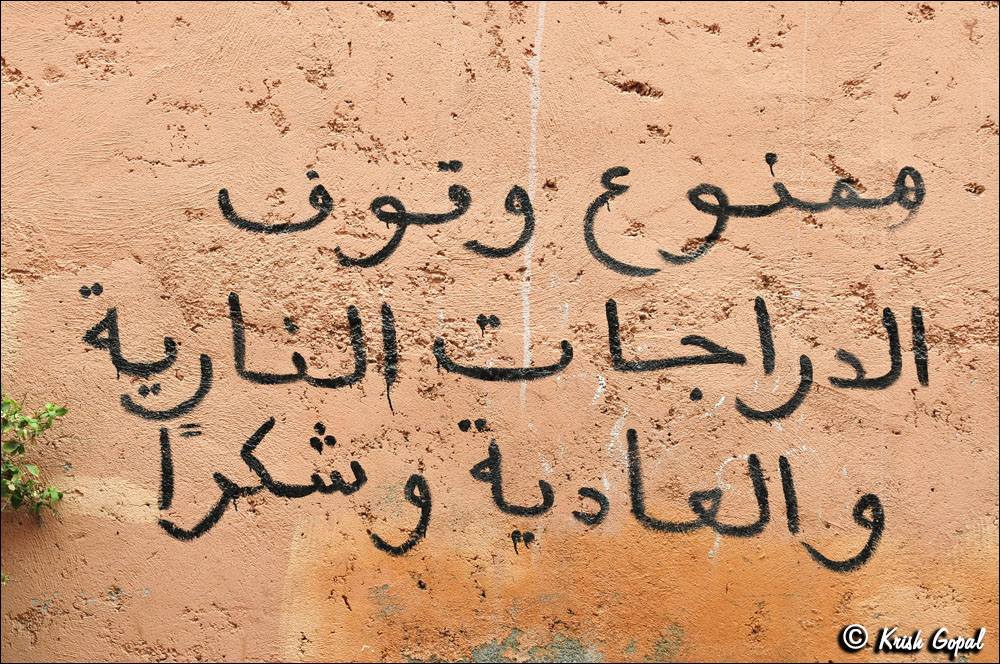 ممنوع وقوف
الدراجات النارية
والعادية وشكراً
© Krish Gopal